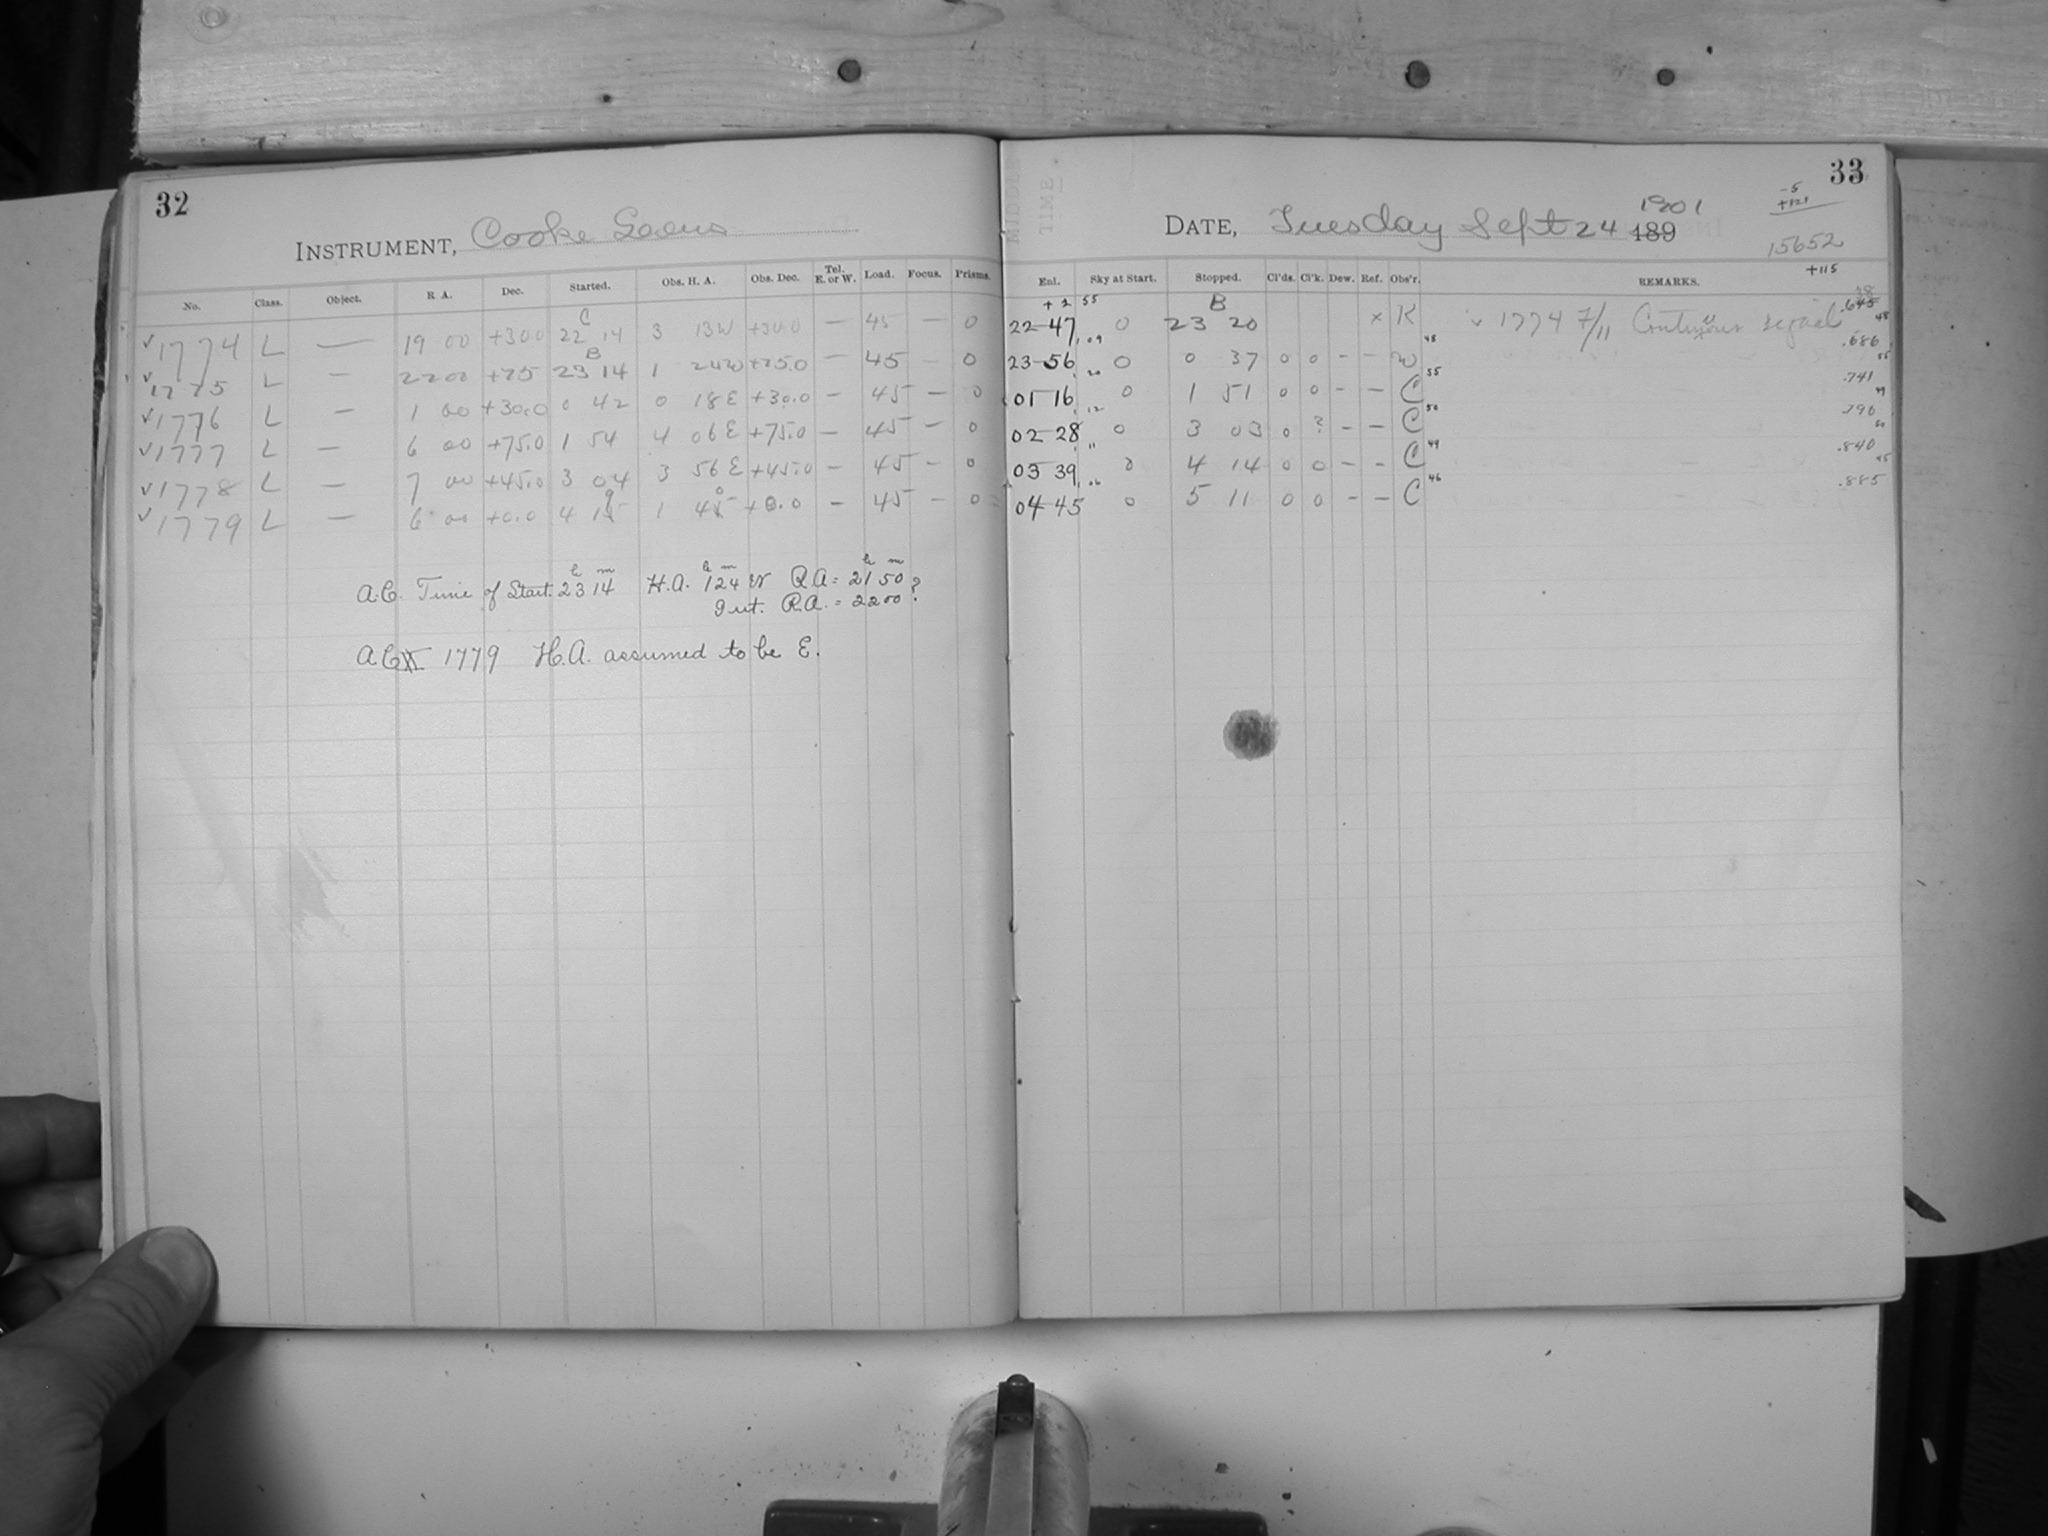 32
INSTRUMENT, Cooke Lens
No. Class. Object. R. A. Dec. Started. Obs. H. A. Obs. Dec. Tel. E. or W. Load. Focus. Prisms.
C
√ 1774 L — 19 00 +30.0 22 14 3 13W +30.0 — 45 — 0
B
√ 1775 L — 22 00 +75 23 14 1 24W +75.0 — 45 — 0
√ 1776 L — 1 00 +30.0 0 42 0 18E +30.0 — 45 — 0
√ 1777 L — 6 00 +75.0 1 54 4 06E +75.0 — 45 — 0
√ 1778 L — 7 00 +45.0 3 04 3 56E +45.0 — 45 — 0
√ 1779 L — 6 00 +0.0 4 1 1 4 +0.0 — 45 — 0
A.C. Time of Start. 23h 14m H.A. 1h 24m W R.A. = 21h 50m?
Int. R.A. = 22 00?
1779 H.A. assumed to be E.
33
DATE, Tuesday Sept 24 1901 189
-5
+121
15652
+115
Enl. Sky at Start. Stopped. Cl'ds. Cl'k. Dew. Ref. Obs'r. REMARKS.
+2 55 B
22-47 0 23 20 x K √ 1774 7/11 Continuous .645
48
23-56 0 0 37 0 0 - - W .686
55
01-16 0 1 51 0 0 - - C .741
50
02-28 0 3 03 0 ? - - C .790
49
03 39 0 4 14 0 0 - - C .840
46
04-45 0 5 11 0 0 - - C .885